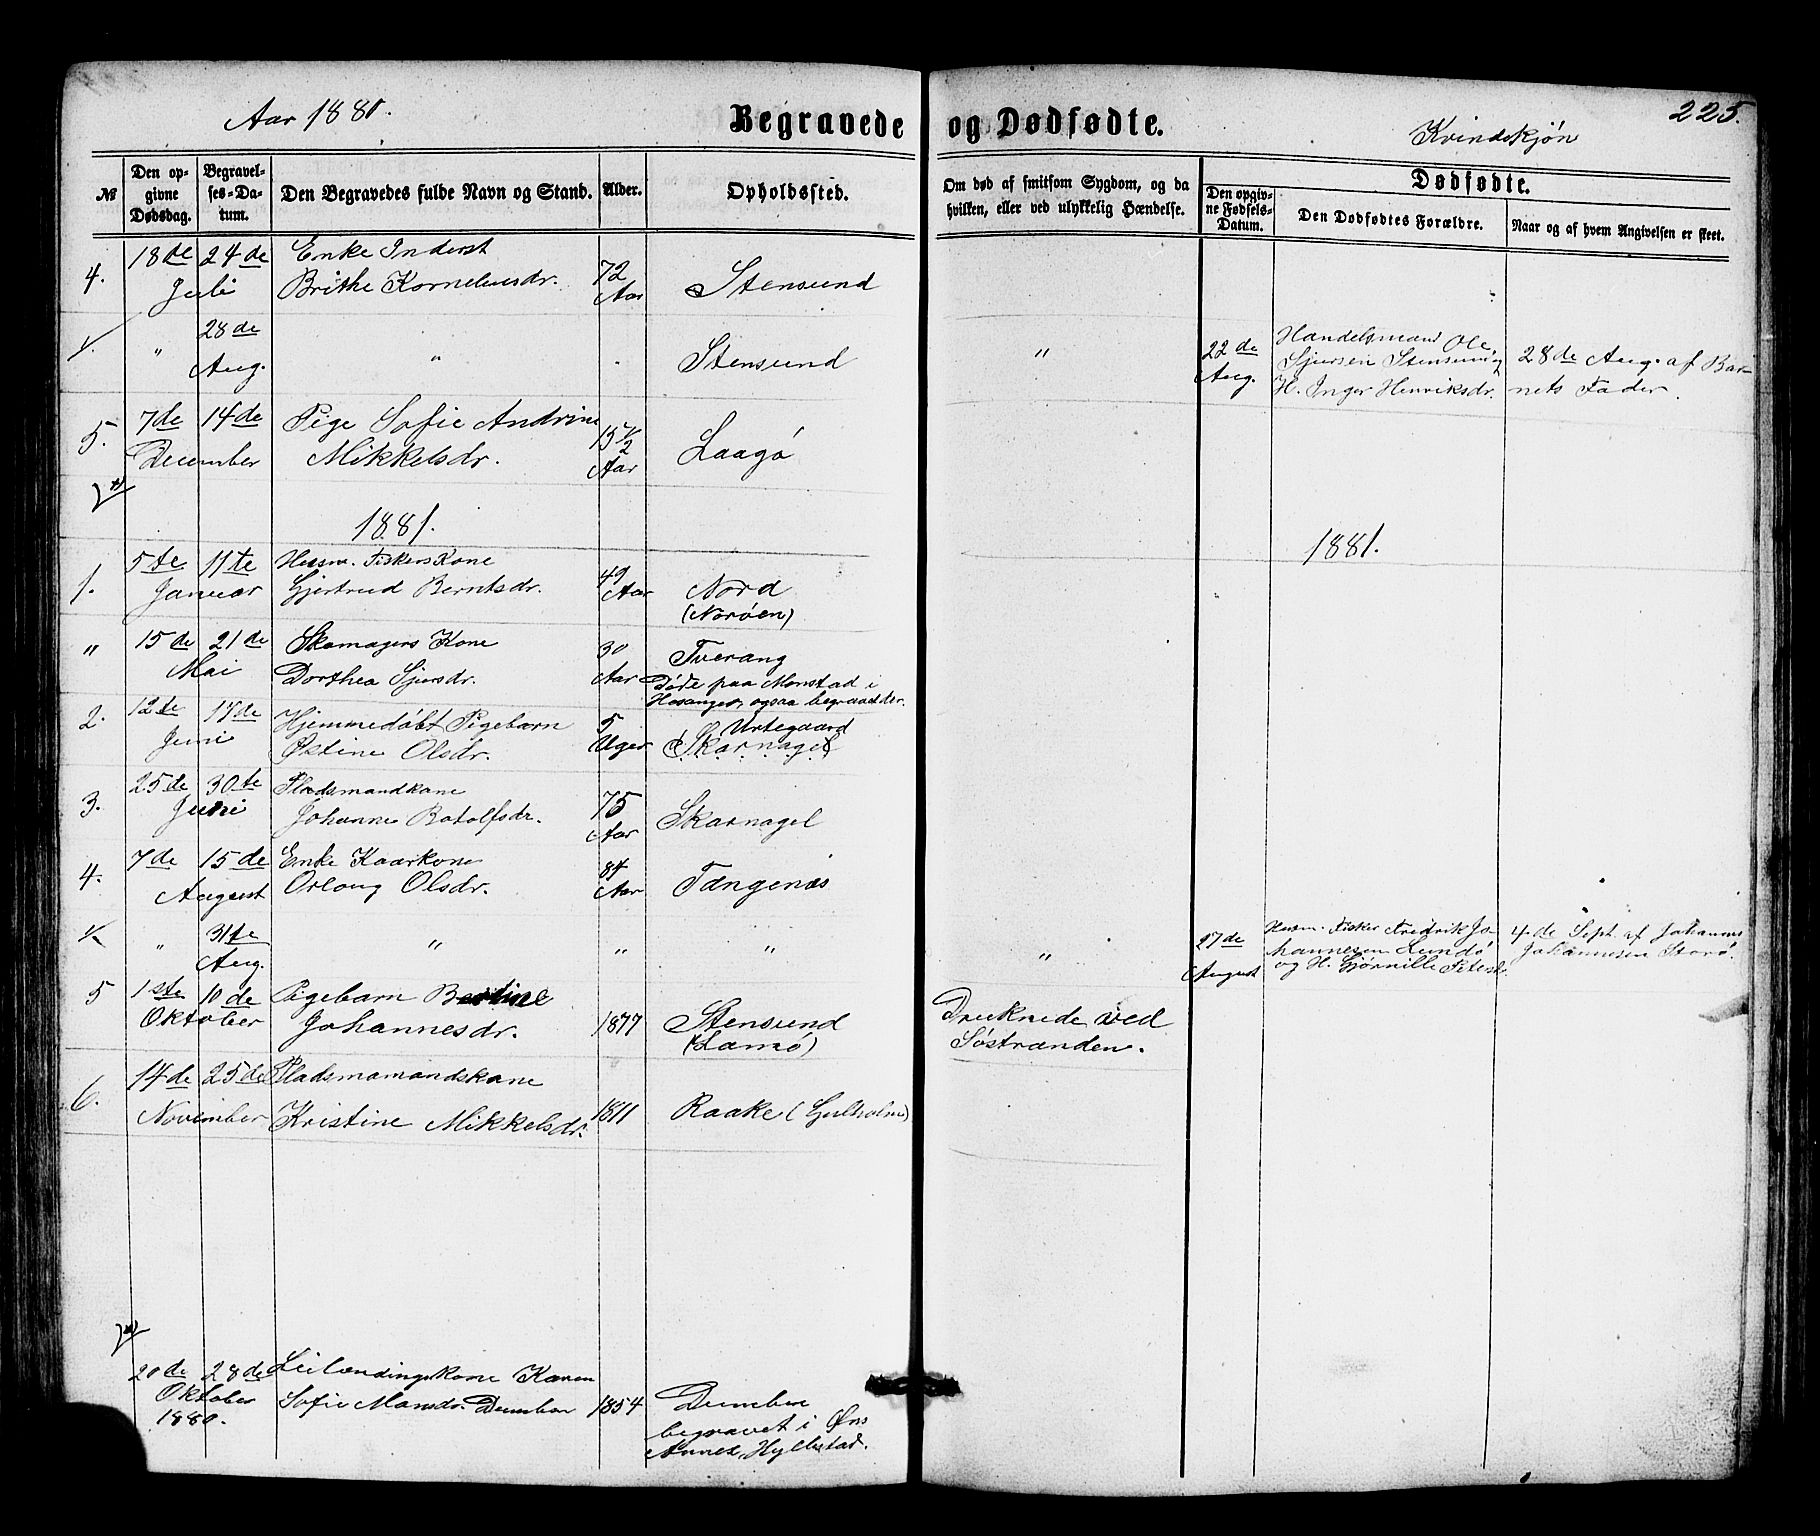 Aar 1880.
Begravede og Dødfødte.
Kvindekjøn
225.
№
Den opgivne Dødsdag.
Begravelses-Datum.
Den Begravedes fulde Navn og Stand.
Alder.
Opholdssted.
Om død af smitsom Sygdom, og da hvilken, eller ved ulykkelig Hændelse.
Dødfødte.
Den opgivne Fødsels-Datum.
Den Dødfødtes Forældre.
Naar og af hvem Angivelsen er skeet.
4. 18de 24de Enke Inderst
Juli Brithe Kornelius dr. 72 Aar Stensund
1/. " 28de Aug. " Stensund " 22de Aug.
Handelsmand Ole
Sjursen Stensund og
H. Inger Henriksdr.
28de Aug. af Bar-
nets Fader.
5. 7de 14de Pige Sofie Andrine
December Mikkelsdr. 15 1/2 Aar Laagø
1881.
1881.
1. 5te 11te Husm. Fiskers Kone
Januar Gjertrud Berntsdr. 49 Aar Nord
(Norøen)
" 15de 21de Skomagers Kone
Mai Dorthea Sjursdr. 30 Aar Tverang
Døde paa Monstad i
Hosanger, ogsaa begravet der.
2. 12te 17de Hjemmedøbt Pigebarn
Juni Østine Olsdr. 5 Uger Urtegaard
(Skarnagel)
3. 25de 30te Pladsmandkone
Juni Johanne Botolfsdr. 75 Aar Skarnagel
4. 7de 15de Enke Kaarkone
August Orloug Olsdr. 84 Aar Tangenæs
1/. " 31te Aug. " " " " 27de August
Husm. Fisker Fredrik Jo-
hannesen Lundø
og H. Gjørnille Petersd.
4de Sept. af Johannes
Johannesen Storø.
5 1ste 10de Pigebarn Bertine
Oktober Johannesdr. 1877 Stensund
(Lamø)
Druknede ved
Søstranden.
6. 14de 25de Pladsmamandskone
November Kristine Mikkelsdr. 1811 Raake (Gulholm)
20de 28de Leilændingskone Karen
Oktober Sofie Monsdr. Dumbor 1854 Dumboe
1880.
begravet i Øns
Annex, Hyllestad.